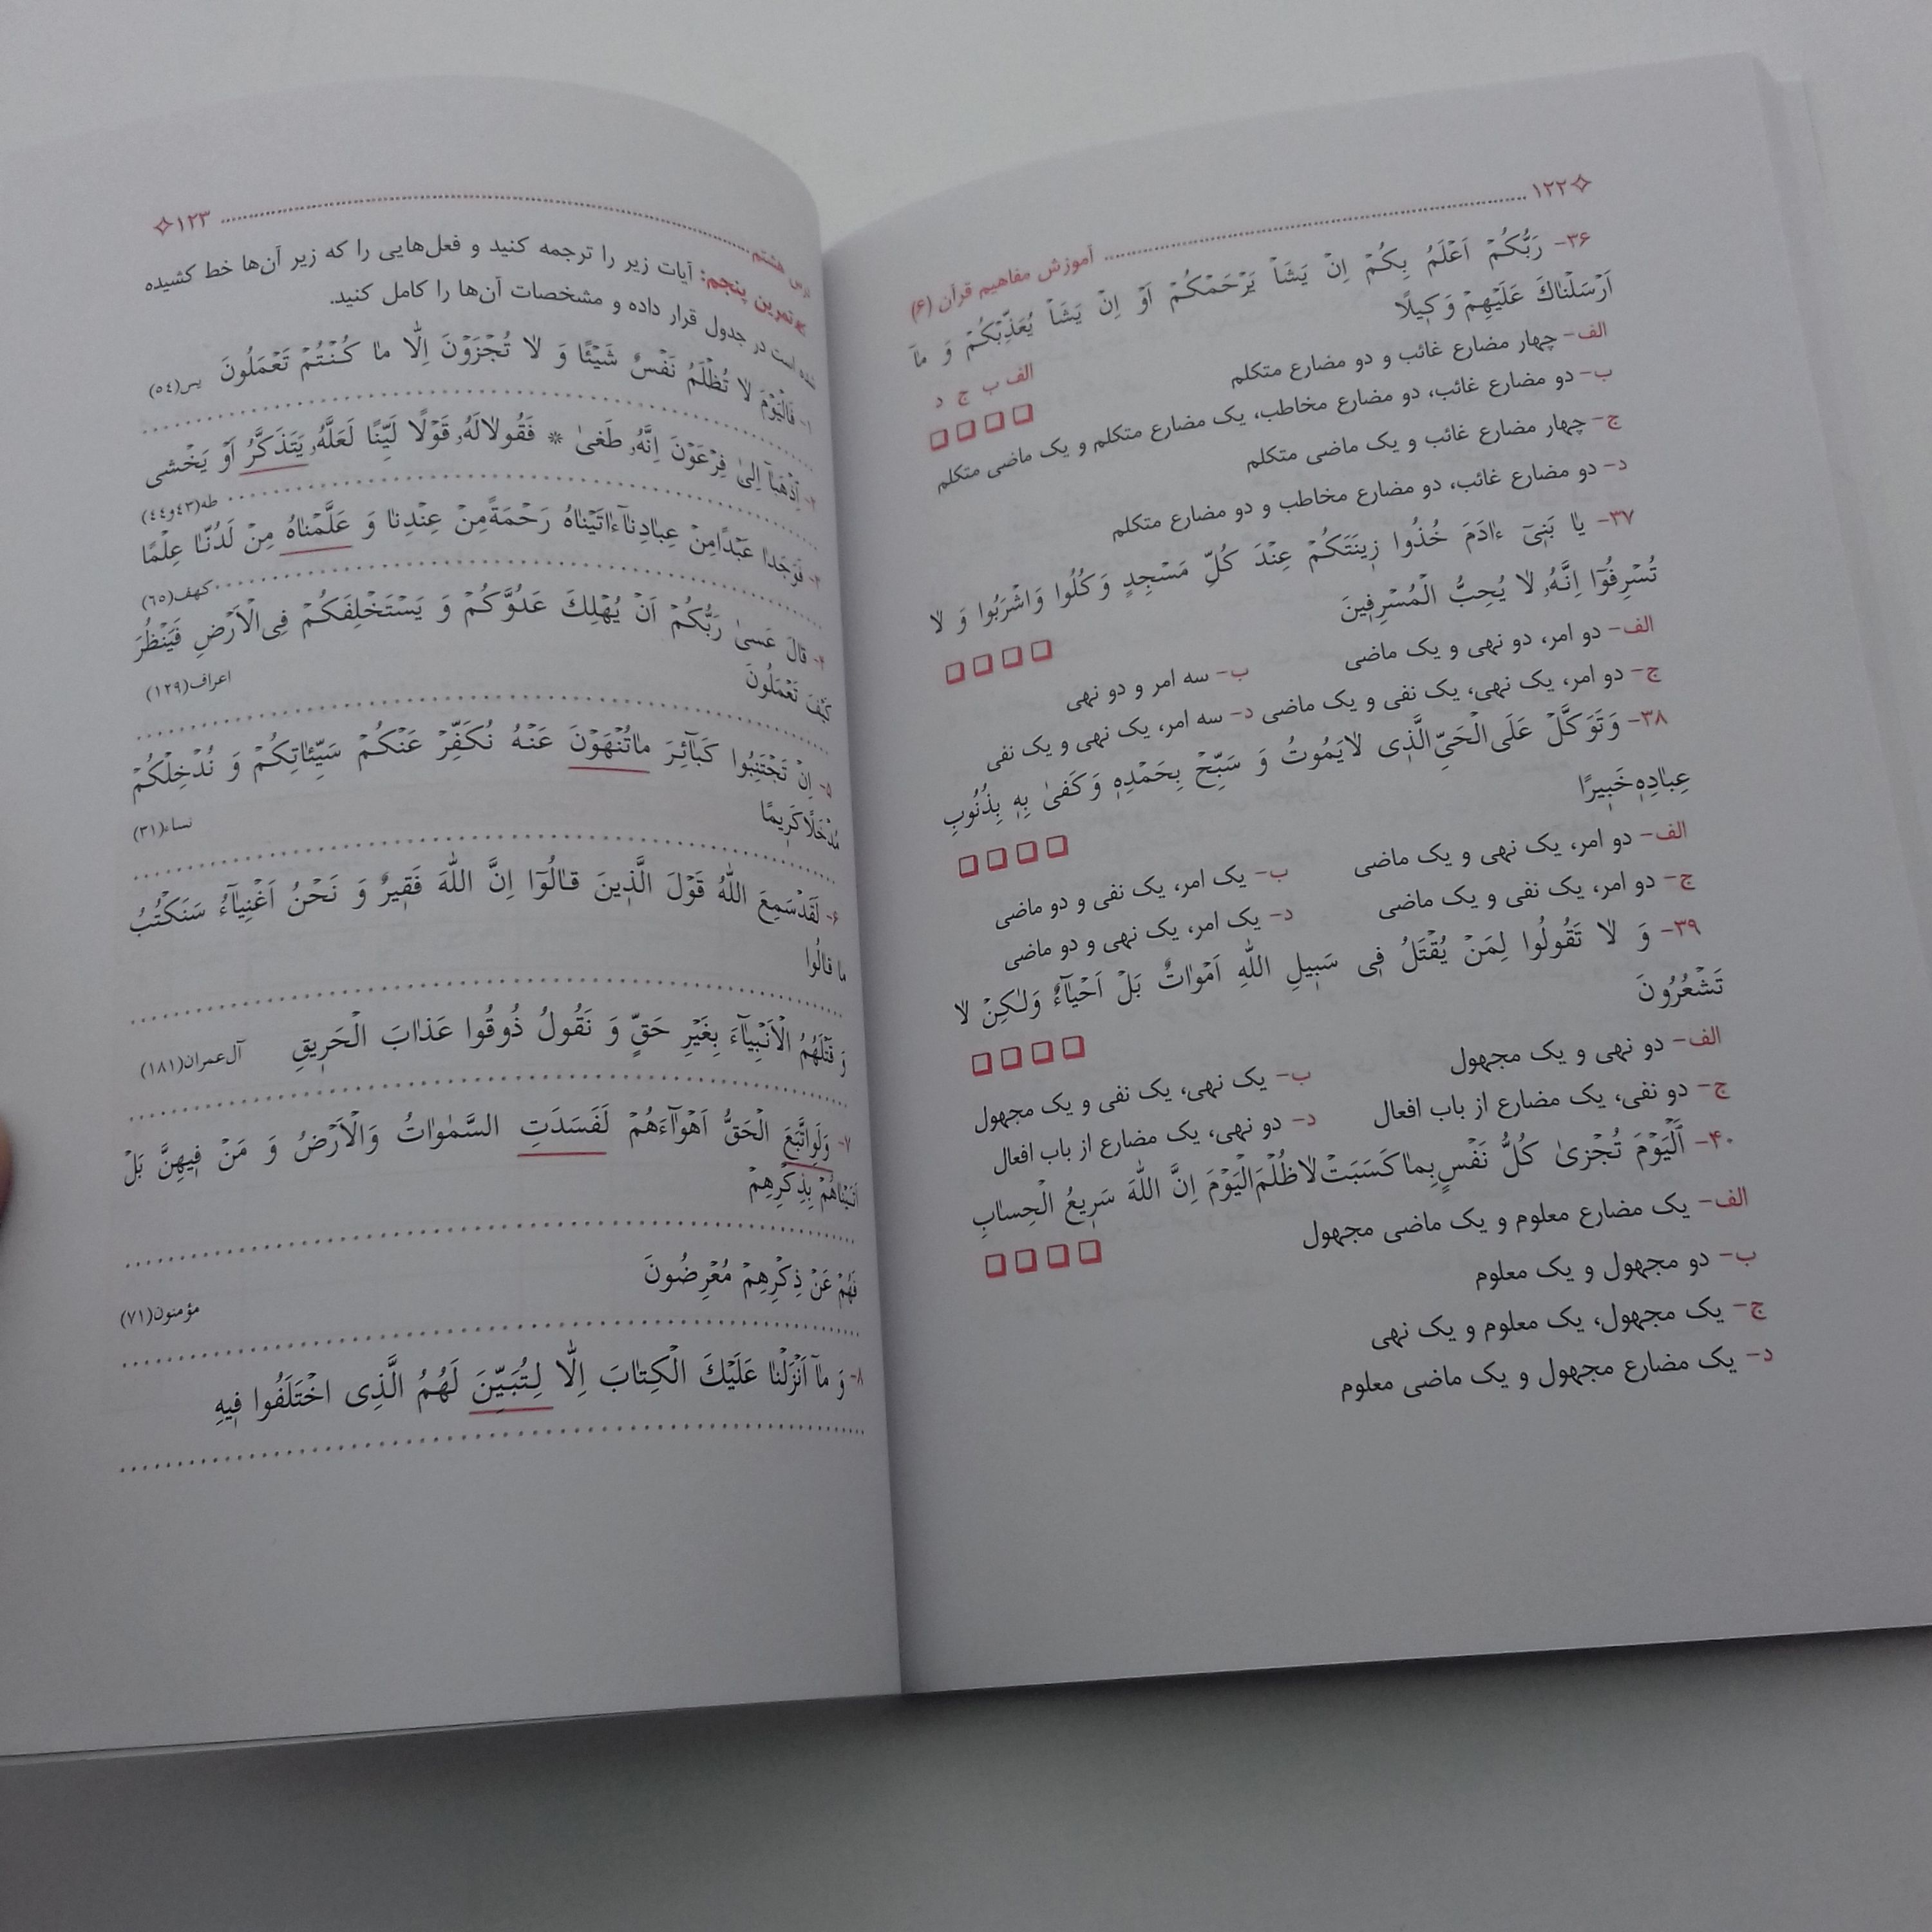 ۱۲۲ آموزش مفاهیم قرآن (۶)
۳۶- رَبُّكُمْ اَعْلَمُ بِكُمْ اِنْ يَشَاْ يَرْحَمْكُمْ اَوْ اِنْ يَشَاْ يُعَذِّبْكُمْ وَ مَاۤ
اَرْسَلْنَاكَ عَلَيْهِمْ وَكِيلًا
الف ب ج د
الف- چهار مضارع غائب و دو مضارع متکلم
ب- دو مضارع غائب، دو مضارع مخاطب، یک مضارع متکلم و یک ماضی متکلم
ج- چهار مضارع غائب و یک ماضی متکلم
د- دو مضارع غائب، دو مضارع مخاطب و دو مضارع متکلم
۳۷- يَا بَنِيۤ ءَادَمَ خُذُوا زِينَتَكُمْ عِنْدَ كُلِّ مَسْجِدٍ وَكُلُوا وَاشْرَبُوا وَ لَا
تُسْرِفُوۤا اِنَّهُ لَا يُحِبُّ الْمُسْرِفِينَ
الف- دو امر، دو نهی و یک ماضی ب- سه امر و دو نهی
ج- دو امر، یک نهی، یک نفی و یک ماضی د- سه امر، یک نهی و یک نفی
۳۸- وَتَوَكَّلْ عَلَى الْحَيِّ الَّذِى لَا يَمُوتُ وَ سَبِّحْ بِحَمْدِهِ وَكَفَىٰ بِهِ بِذُنُوبِ
عِبَادِهِ خَبِيرًا
الف- دو امر، یک نهی و یک ماضی ب- یک امر، یک نفی و دو ماضی
ج- دو امر، یک نفی و یک ماضی د- یک امر، یک نهی و دو ماضی
۳۹- وَ لَا تَقُولُوا لِمَنْ يُقْتَلُ فِى سَبِيلِ اللهِ اَمْوَاتٌ بَلْ اَحْيَاۤءٌ وَلٰكِنْ لَا
تَشْعُرُونَ
الف- دو نهی و یک مجهول ب- یک نهی، یک نفی و یک مجهول
ج- دو نفی، یک مضارع از باب افعال د- دو نهی، یک مضارع از باب افعال
۴۰- اَلْيَوْمَ تُجْزَىٰ كُلُّ نَفْسٍ بِمَا كَسَبَتْ لَا ظُلْمَ الْيَوْمَ اِنَّ اللهَ سَرِيعُ الْحِسَابِ
الف- یک مضارع معلوم و یک ماضی مجهول
ب- دو مجهول و یک معلوم
ج- یک مجهول، یک معلوم و یک نهی
د- یک مضارع مجهول و یک ماضی معلوم
درس هشتم ۱۲۳
تمرین پنجم: آیات زیر را ترجمه کنید و فعل‌هایی را که زیر آن‌ها خط کشیده
شده است در جدول قرار داده و مشخصات آن‌ها را کامل کنید.
۱- فَالْيَوْمَ لَا تُظْلَمُ نَفْسٌ شَيْئًا وَ لَا تُجْزَوْنَ اِلَّا مَا كُنْتُمْ تَعْمَلُونَ يس(٥٤)
۲- اِذْهَبَاۤ اِلَىٰ فِرْعَوْنَ اِنَّهُ طَغَىٰ * فَقُولَا لَهُ قَوْلًا لَيِّنًا لَعَلَّهُ يَتَذَكَّرُ اَوْ يَخْشَى
طه(٤٣و٤٤)
۳- فَوَجَدَا عَبْدًا مِنْ عِبَادِنَاۤ ءَاتَيْنَاهُ رَحْمَةً مِنْ عِنْدِنَا وَ عَلَّمْنَاهُ مِنْ لَدُنَّا عِلْمًا
كهف(٦٥)
۴- قَالَ عَسَىٰ رَبُّكُمْ اَنْ يُهْلِكَ عَدُوَّكُمْ وَ يَسْتَخْلِفَكُمْ فِى الْاَرْضِ فَيَنْظُرَ
كَيْفَ تَعْمَلُونَ اعراف(١٢٩)
۵- اِنْ تَجْتَنِبُوا كَبَاۤئِرَ مَا تُنْهَوْنَ عَنْهُ نُكَفِّرْ عَنْكُمْ سَيِّئَاتِكُمْ وَ نُدْخِلْكُمْ
مُدْخَلًا كَرِيمًا نساء(٣١)
۶- لَقَدْ سَمِعَ اللهُ قَوْلَ الَّذِينَ قَالُوۤا اِنَّ اللهَ فَقِيرٌ وَ نَحْنُ اَغْنِيَاۤءُ سَنَكْتُبُ
مَا قَالُوا
وَ قَتْلَهُمُ الْاَنْبِيَاۤءَ بِغَيْرِ حَقٍّ وَ نَقُولُ ذُوقُوا عَذَابَ الْحَرِيقِ آل‌عمران(١٨١)
۷- وَلَوِ اتَّبَعَ الْحَقُّ اَهْوَاۤءَهُمْ لَفَسَدَتِ السَّمٰوَاتُ وَالْاَرْضُ وَ مَنْ فِيهِنَّ بَلْ
اَتَيْنَاهُمْ بِذِكْرِهِمْ
فَهُمْ عَنْ ذِكْرِهِمْ مُعْرِضُونَ مؤمنون(٧١)
۸- وَ مَاۤ اَنْزَلْنَا عَلَيْكَ الْكِتَابَ اِلَّا لِتُبَيِّنَ لَهُمُ الَّذِى اخْتَلَفُوا فِيهِ